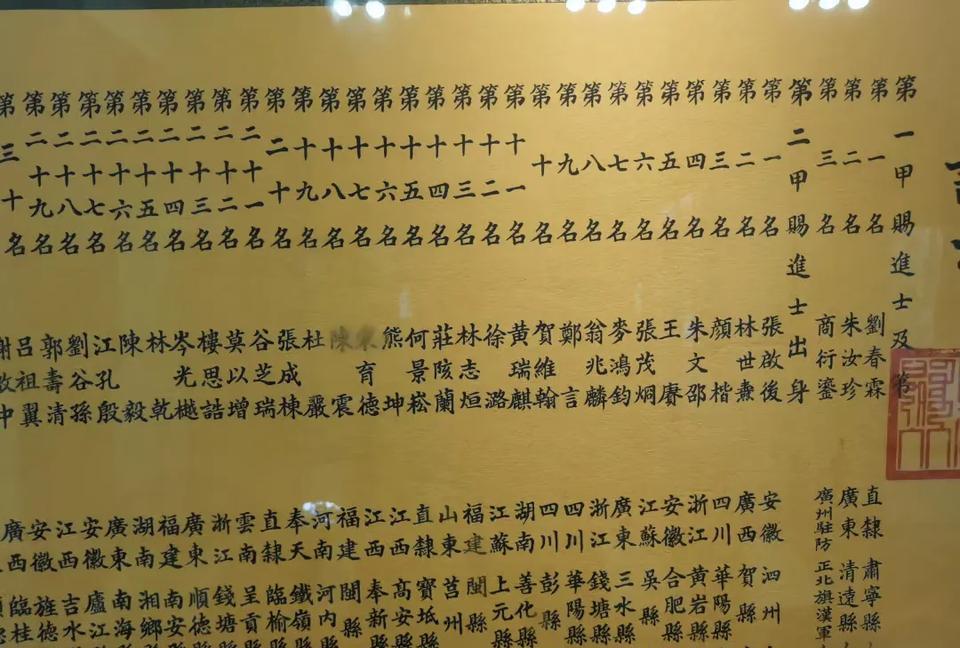 第一甲賜進士及第
第一名 劉春霖 直隸 肅寧縣
第二名 朱汝珍 廣東 清遠縣
第三名 商衍鎏 廣州駐防 正北旗漢軍
第二甲賜進士出身
第一名 張啟後 安徽 泗州
第二名 林世燾 廣西 賀縣
第三名 顏楷 四川 華陽縣
第四名 朱文邵 浙江 黃岩縣
第五名 王賡 安徽 合肥縣
第六名 張茂炯 江蘇 吳縣
第七名 麥鴻鈞 廣東 三水縣
第八名 翁兆麟 浙江 錢塘縣
第九名 鄭言 四川 華陽縣
第十名 賀維翰 四川 彭縣
第十一名 黃瑞麒 湖南 善化縣
第十二名 徐潞 江蘇 上元縣
第十三名 林志垣 福建 閩縣
第十四名 莊陔蘭 山東 莒州
第十五名 何景崧 直隸 寶坻縣
第十六名 熊坤 江西 高安縣
第十七名 育德 江西 奉新縣
第十八名 陳震 福建 閩縣
第十九名 杜嚴 河南 河內縣
第二十名 張成棟 奉天 鐵嶺縣
第二十一名 谷芝瑞 直隸 臨榆縣
第二十二名 莫以增 雲南 呈貢
第二十三名 樓思誥 浙江 錢塘
第二十四名 岑光樾 廣東 順德
第二十五名 林乾 福建 南安
第二十六名 陳毅 湖南 湘鄉
第二十七名 江孔殷 廣東 南海
第二十八名 劉谷孫 安徽 廬江
第二十九名 郭壽清 江西 吉水
第三十名 呂祖翼 安徽 旌德
謝中 廣西 臨桂